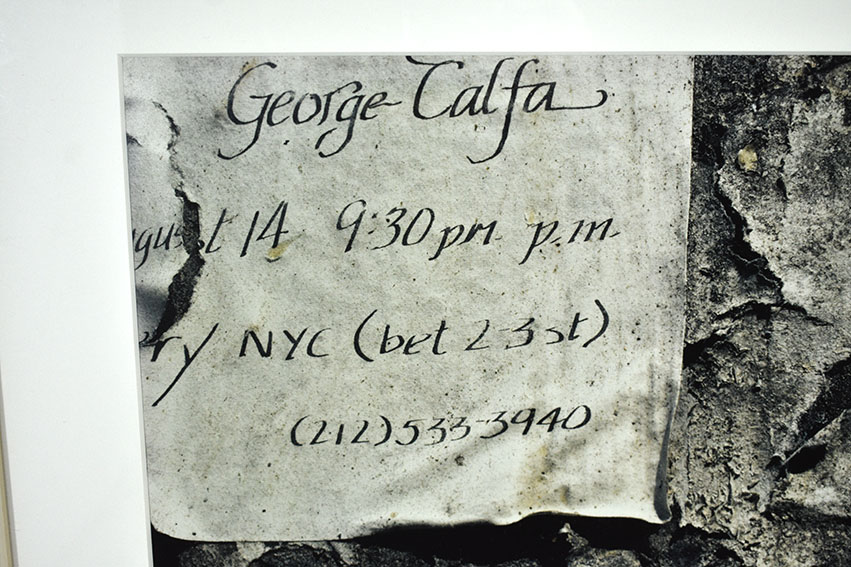 George Calfa
gust 14 9:30 pm p.m.
ery NYC (bet 2-3 st)
(212) 533-3940